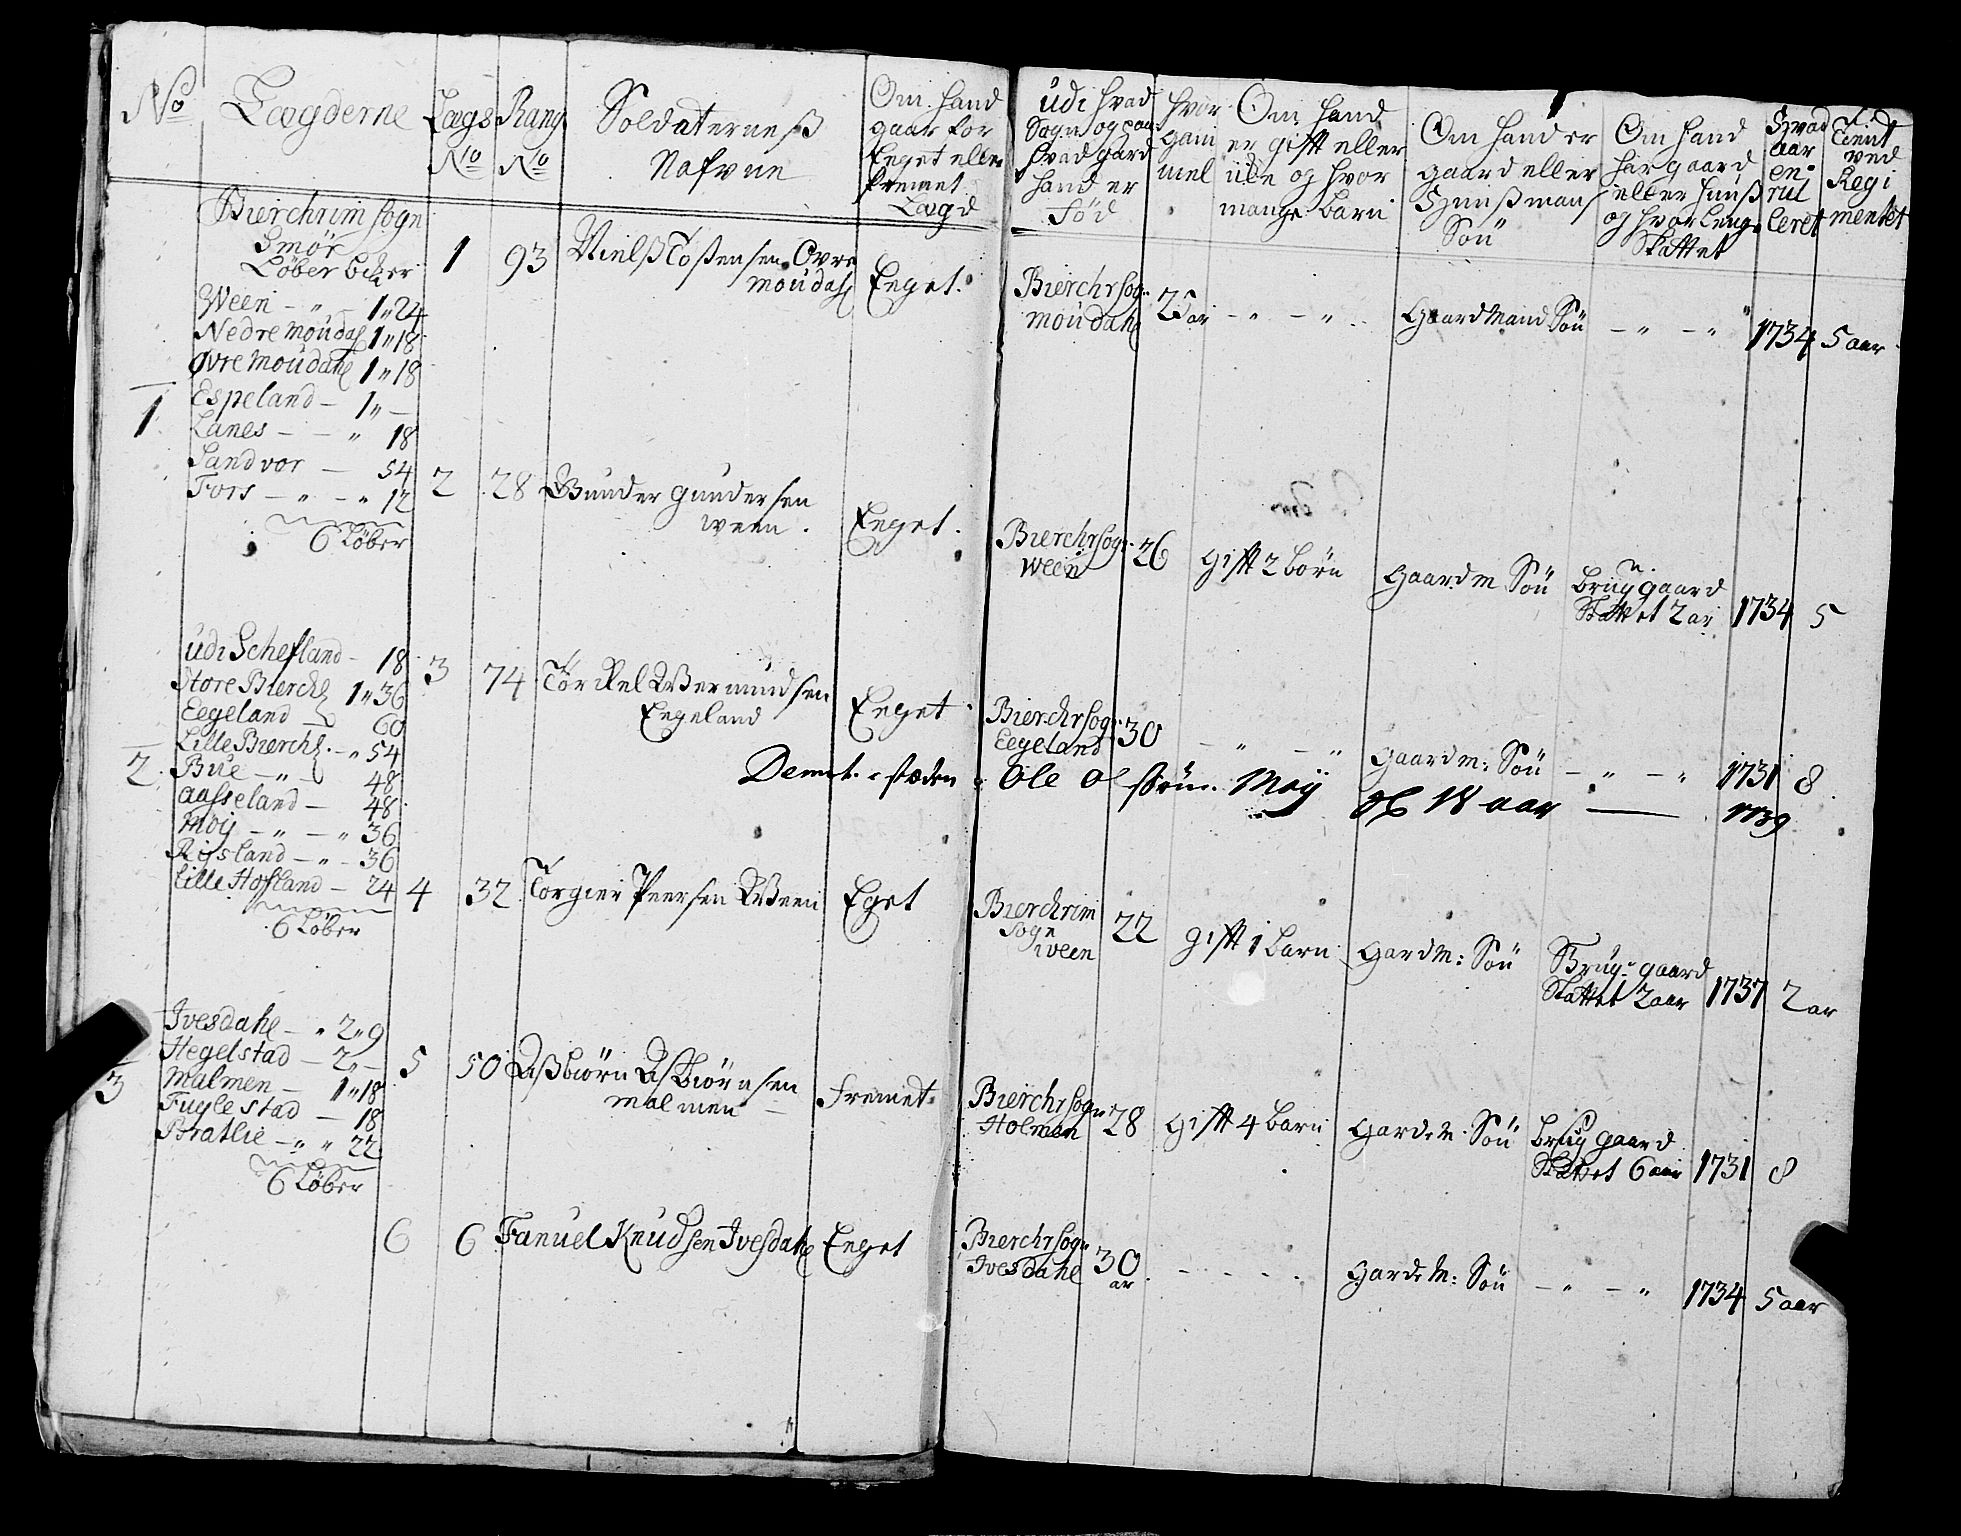 No
Lægderne
Lægs
No
Rang
No
Soldaterneß
Nafvne
Om hand
gaar for
Eeget eller
fremet
Lægd
udi hvad
Sogn og paa
hvad gaard
hand er
fød
hvor
gam
mel
Om hand
er gift eller
ude og hvor
mange barn
Om hand er
gaard eller
Huußmans
Søn
Om hand
har gaard
eller huuß
og hvor lenge
Skattet
Hvad
aar
en-
rul
leret
Tient
ved
Regi
mentet
Bierchrim sogn
Smør
Løber
Ween - " - 1"24
Nedre Moudal 1"18
Øvre Moudahl 1"18
1
Espeland - 1"-
Lanes - - " 18
Sandvor - 54
Fors - " - " 12
6 Løber
1 93 Nielß Toßensen Ovre
moudahl
Eeget.
Bierchr sogn
moudahl
25 ar
- " - " -
Gaardmand Søn
- " - "
1734
5 aar
2 28 Gunder gundersen
ween.
Eeget.
Bierchr sogn
Ween
26
Gift 2 börn
Gaardm Søn
brug gaard
Skattet 2 ar
1734
5
2
udi Schefland - 18
Store Bierchl 1"36
Eegeland 60
Lille Bierchl. - " 54
Bue - " - 48
Aasseland - 48
Moy - " - " 36
Rijsland - " - 36
Lille Hofland - 24
6 Løber
3 74 Torkel Wermundsen
Eegeland
Eeget
Bierchr sogn
Eegeland
30
- " - "
Gaardm: Søn
- " - "
1731
8
Dennt. stæden Ole Ol Møy 18 aar
1739
4 32 Torgier Peersen Ween
Eget
Bierchrim
Sogn
ween
22
gift 1 barn
Gardm: Søn
Brug gaard
Skattet 2 aar
1737
2 ar
3
Ivesdahl - " 2"9
Hegelstad - 2"-
Malmen - 1"18
Fuglestad - 18
Bratlie - " " 22
6 Løber
5 50 Aßbiørn Asbiørnsen
malmen
fremet
Bierchr sogn
Holmen
28
Gift 4 barn
Gardem. Søn
brug gaard
Skattet 6 aar
1731
8
6 6 Fanuel Knudsen Ivesdahl
Eeget
Bierchr sogn
Ivesdahl
30
ar
- - - -
Gardem: Søn
- " - "
1734
5 aar